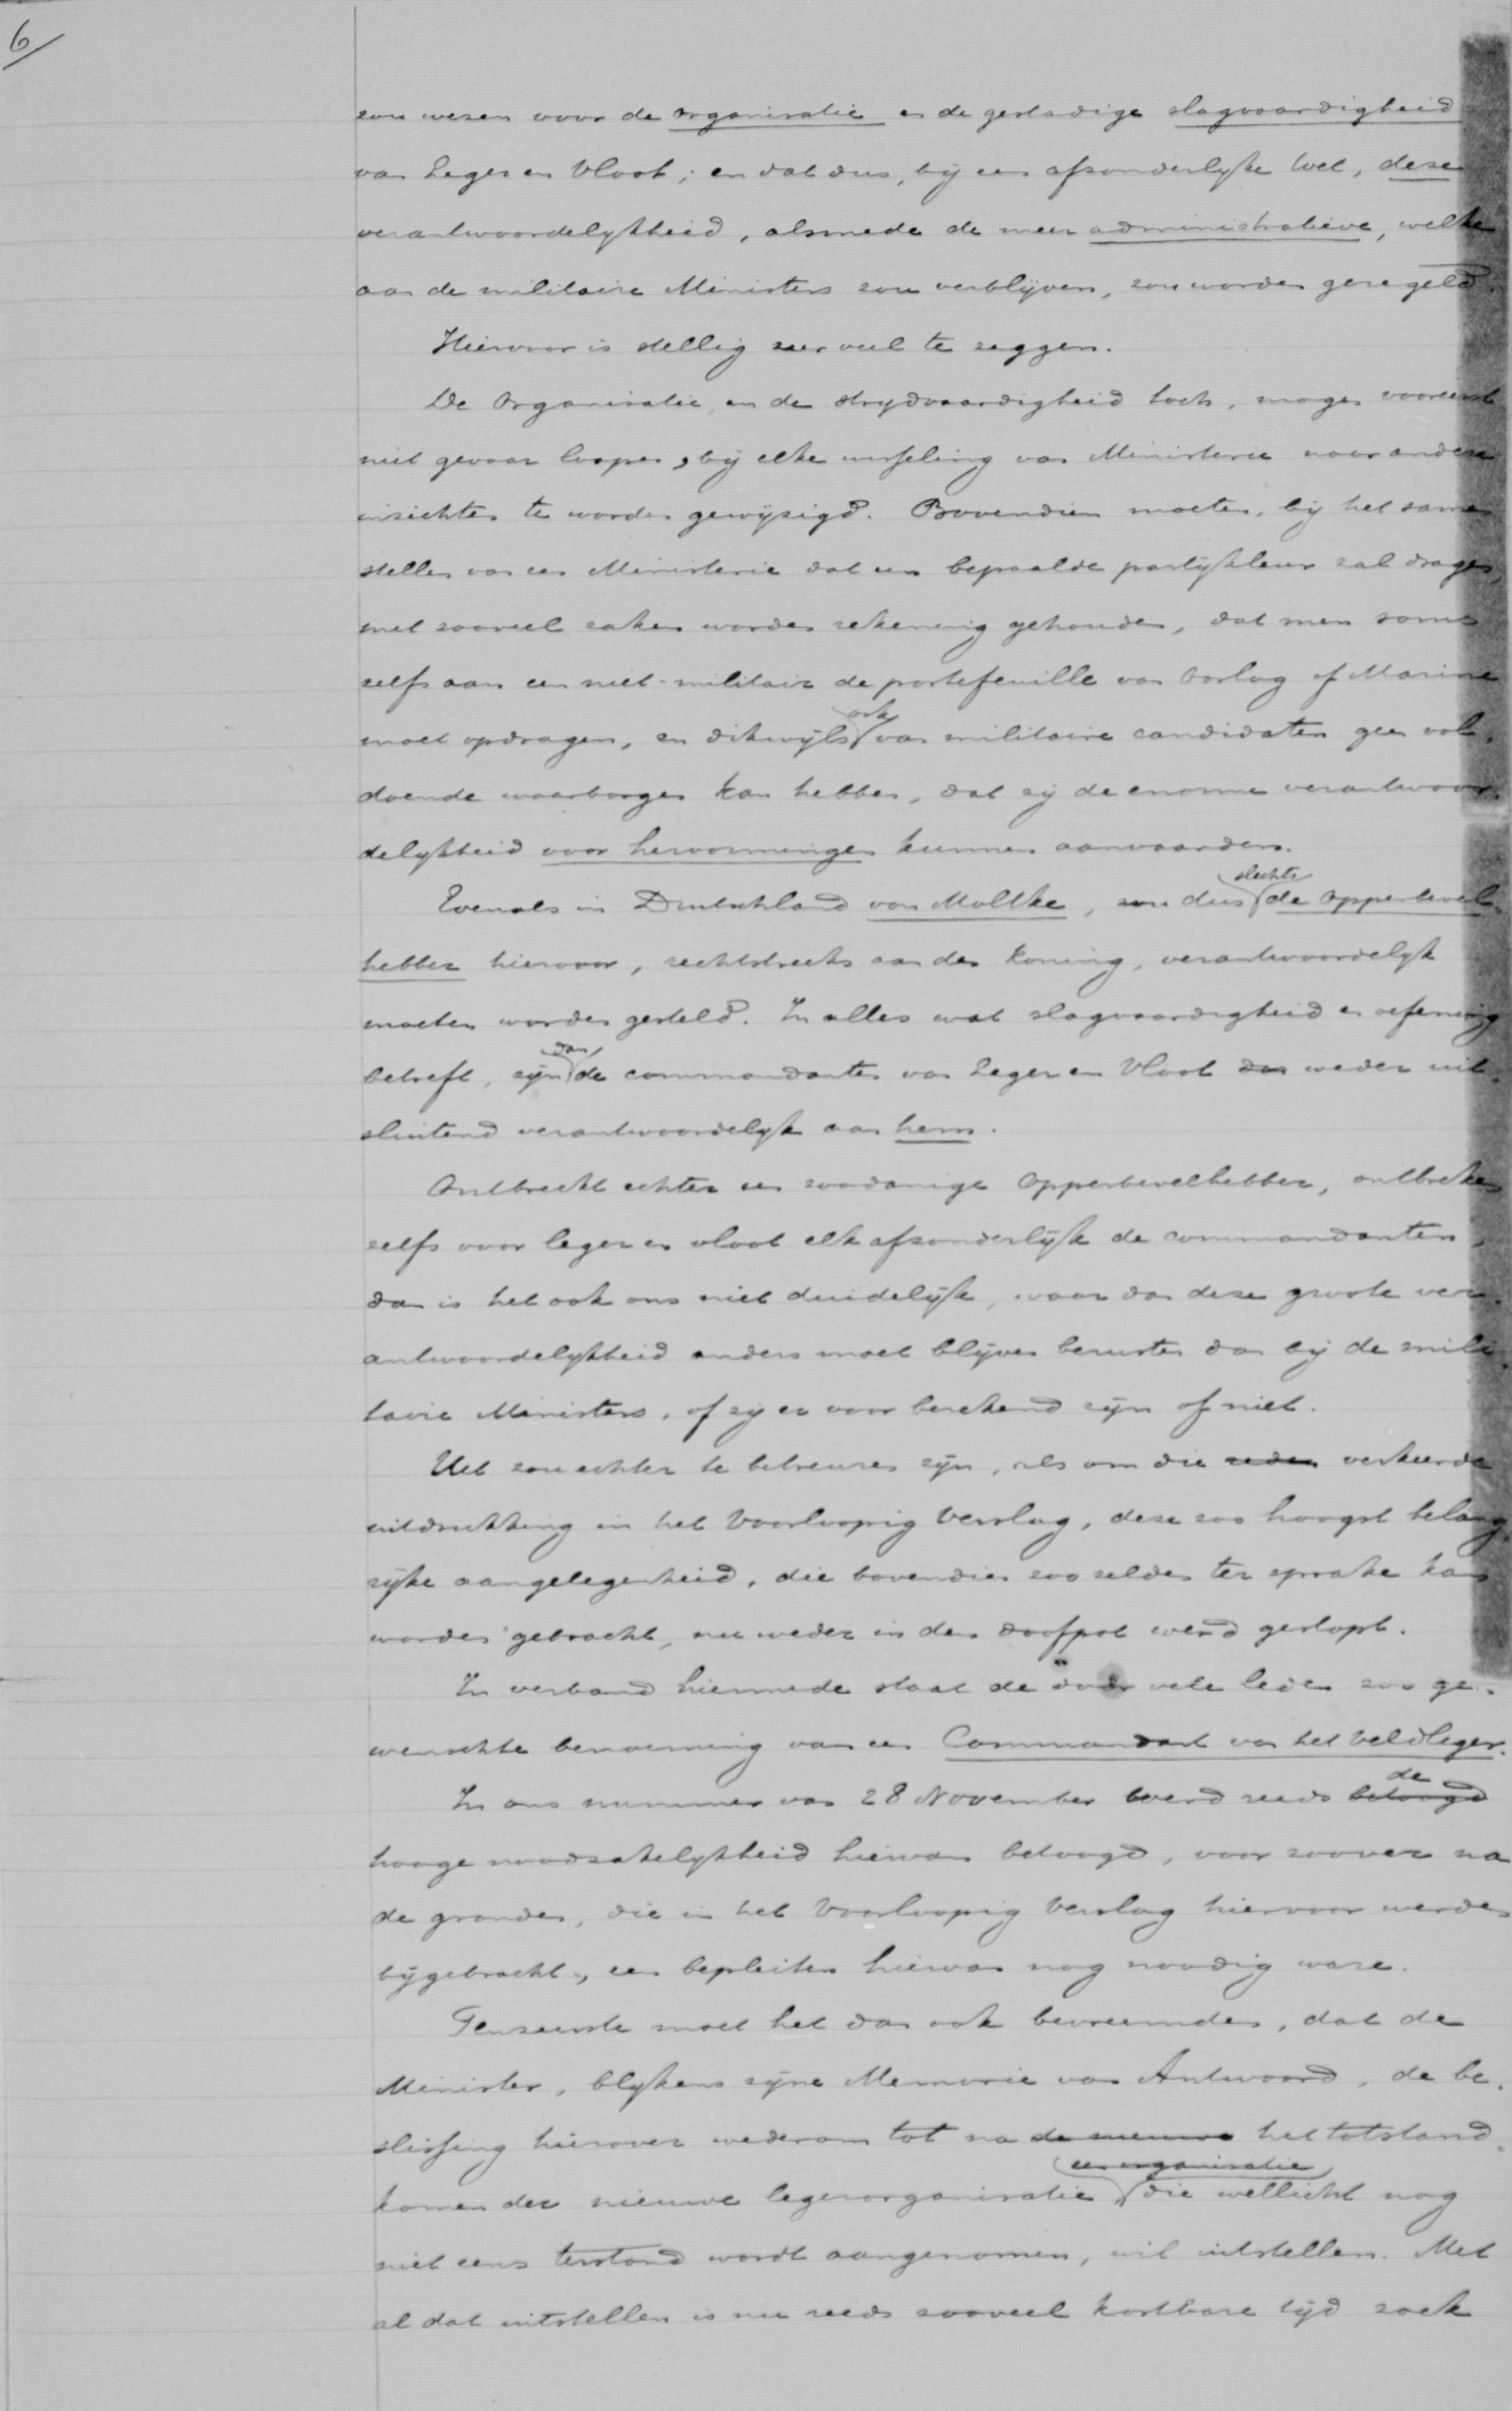 6/
zou wezen voor de organisatie en de gestadige slagvaardigheid
van Leger en Vloot; en dat dus, bij een afzonderlyke Wet, deze
verantwoordelykheid, alsmede de meer administratieve, welke
aan de militaire Ministers zou verblijven, zou worden geregeld.
Hiervoor is stellig zeer veel te zeggen.
De organisatie en de strydvaardigheid toch, mogen vooreerst
niet gevaar loopen, bij elke wisseling van Ministerie naar andere
inzichten te worden gewijzigd. Bovendien moeten, bij het samen
stellen van een Ministerie dat een bepaalde partijkleur zal dragen,
met zooveel zaken worden rekening gehouden, dat men soms
zelfs aan een niet-militair de portefeuille van Oorlog of Marine
moet opdragen, en dikwijls ook van militaire candidaten geen vol-
doende waarborgen kan hebben, dat zij de enorme verantwoor-
delykheid voor hervormingen kunnen aanvaarden.
Evenals in Deutschland von Moltke, zou dus slechts de opperbevel-
hebber hiervoor, rechtstreeks aan den Koning, verantwoordelyk
moeten worden gesteld. In alles wat slagvaardigheid en oefening
betreft, zijn dan de commandanten van Leger en Vloot dan weder uit-
sluitend verantwoordelyk aan hem.
Ontbreekt echter een zoodanige Opperbevelhebber, ontbreken
zelfs voor leger en vloot elk afzonderlijk de commandanten,
dan is het ook ons niet duidelijk, waar dan deze groote ver-
antwoordelykheid anders moet blijven berusten dan bij de mili-
taire Ministers, of zij er voor berekend zijn of niet.
Het zou echter te betreuren zijn, als om die reden verkeerde
uitdrukking in het Voorloopig Verslag, deze zoo hoogst belang-
rijke aangelegenheid, die bovendien zoo zelden ter sprake kan
worden gebracht, nu weder in den doofpot werd gestopt.
In verband hiermede staat de door vele leden zoo ge-
wenschte benoeming van een Commandant van het Veldleger.
In ons nummer van 28 November werd reeds betoogd de
hooge noodzakelykheid hiervan betoogd, voor zoover na
de gronden, die in het Voorloopig Verslag hiervoor werden
bijgebracht, een bepleiten hiervan nog noodig ware.
Tenzeerste moet het dan ook bevreemden, dat de
Minister, blykens zijne Memorie van Antwoord, de be-
slissing hierover wederom tot na de nieuwe het totstand-
komen der nieuwe legerorganisatie, een organisatie die wellicht nog
niet eens terstond wordt aangenomen, wil uitstellen. Met
al dat uitstellen is nu reeds zooveel kostbare tijd zoek